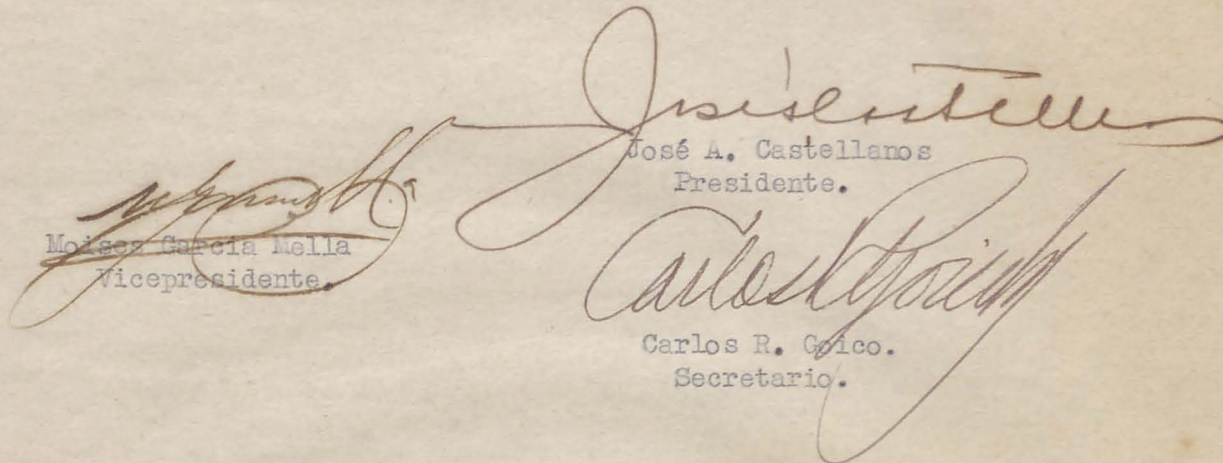 José A. Castellanos
Presidente.
Moises Garcia Mella
Vicepresidente.
Carlos R. Goico.
Secretario.